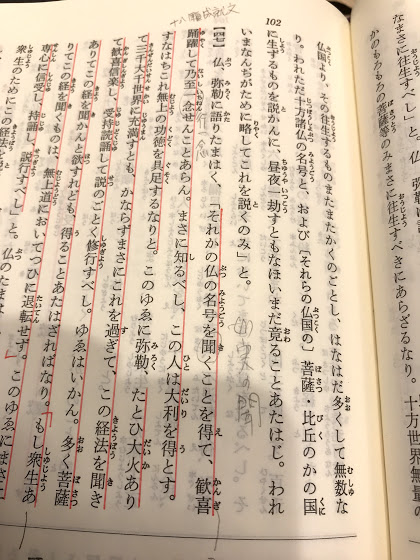 なまさに往生すべし」と。仏、弥勒
かのもろもろの菩薩等のみまさに往生すべきにあらざ
十方世界無量の
102
仏国より、その往生するものまたまたかくのごとし、はなはだ多くして無数な
り。われただ十方諸仏の名号と、および〔それらの仏国の〕菩薩・比丘のかの国
に生ずるものを説かんに、昼夜一劫すともなほいまだ竟ることあたはじ。われ
いまなんぢがために略してこれを説くのみ」と。
十八願成就文
【四七】 仏、弥勒に語りたまはく、「それかの仏の名号を聞くことを得て、歓喜
行一念
踊躍して乃至一念せんことあらん。まさに知るべし、この人は大利を得とす。
すなはちこれ無上の功徳を具足するなりと。このゆゑに弥勒、たとひ大火あり
て三千大千世界に充満すとも、かならずまさにこれを過ぎて、この経法を聞き
て歓喜信楽し、受持読誦して説のごとく修行すべし。ゆゑはいかん。多く菩薩
ありてこの経を聞かんと欲すれども、得ることあたはざればなり。もし衆生あ
りてこの経を聞くものは、無上道においてつひに退転せず。このゆゑにまさに
専心に信受し、持誦し、説行すべし」と。仏のたまは
衆生のためにこの経法